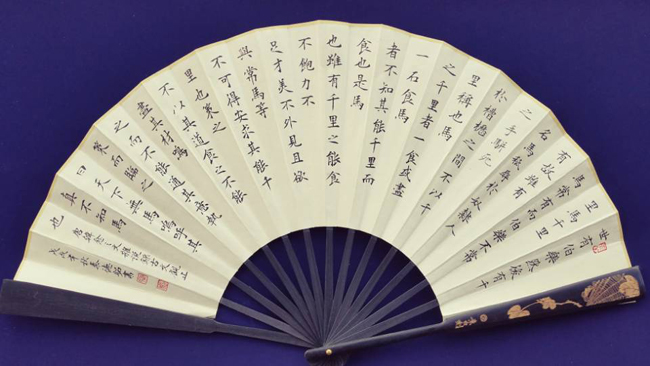 世有伯樂然後有千
里馬千里
馬常有而伯樂不常
有故雖有
名馬秖辱於奴隸人
之手駢死
於槽櫪之間不以千
里稱也馬
之千里者一食或盡
一石食馬
者不知其能千里而
食也是馬
也雖有千里之能食
不飽力不
足才美不外見且欲
與常馬等
不可得安求其能千
里也策之
不以其道食之不能
盡其材鳴
之而不能通其意執
策而臨之
曰天下無馬嗚呼其
真不知馬
也
唐韓愈之文雜說 古文觀止
戊戌年秋 書